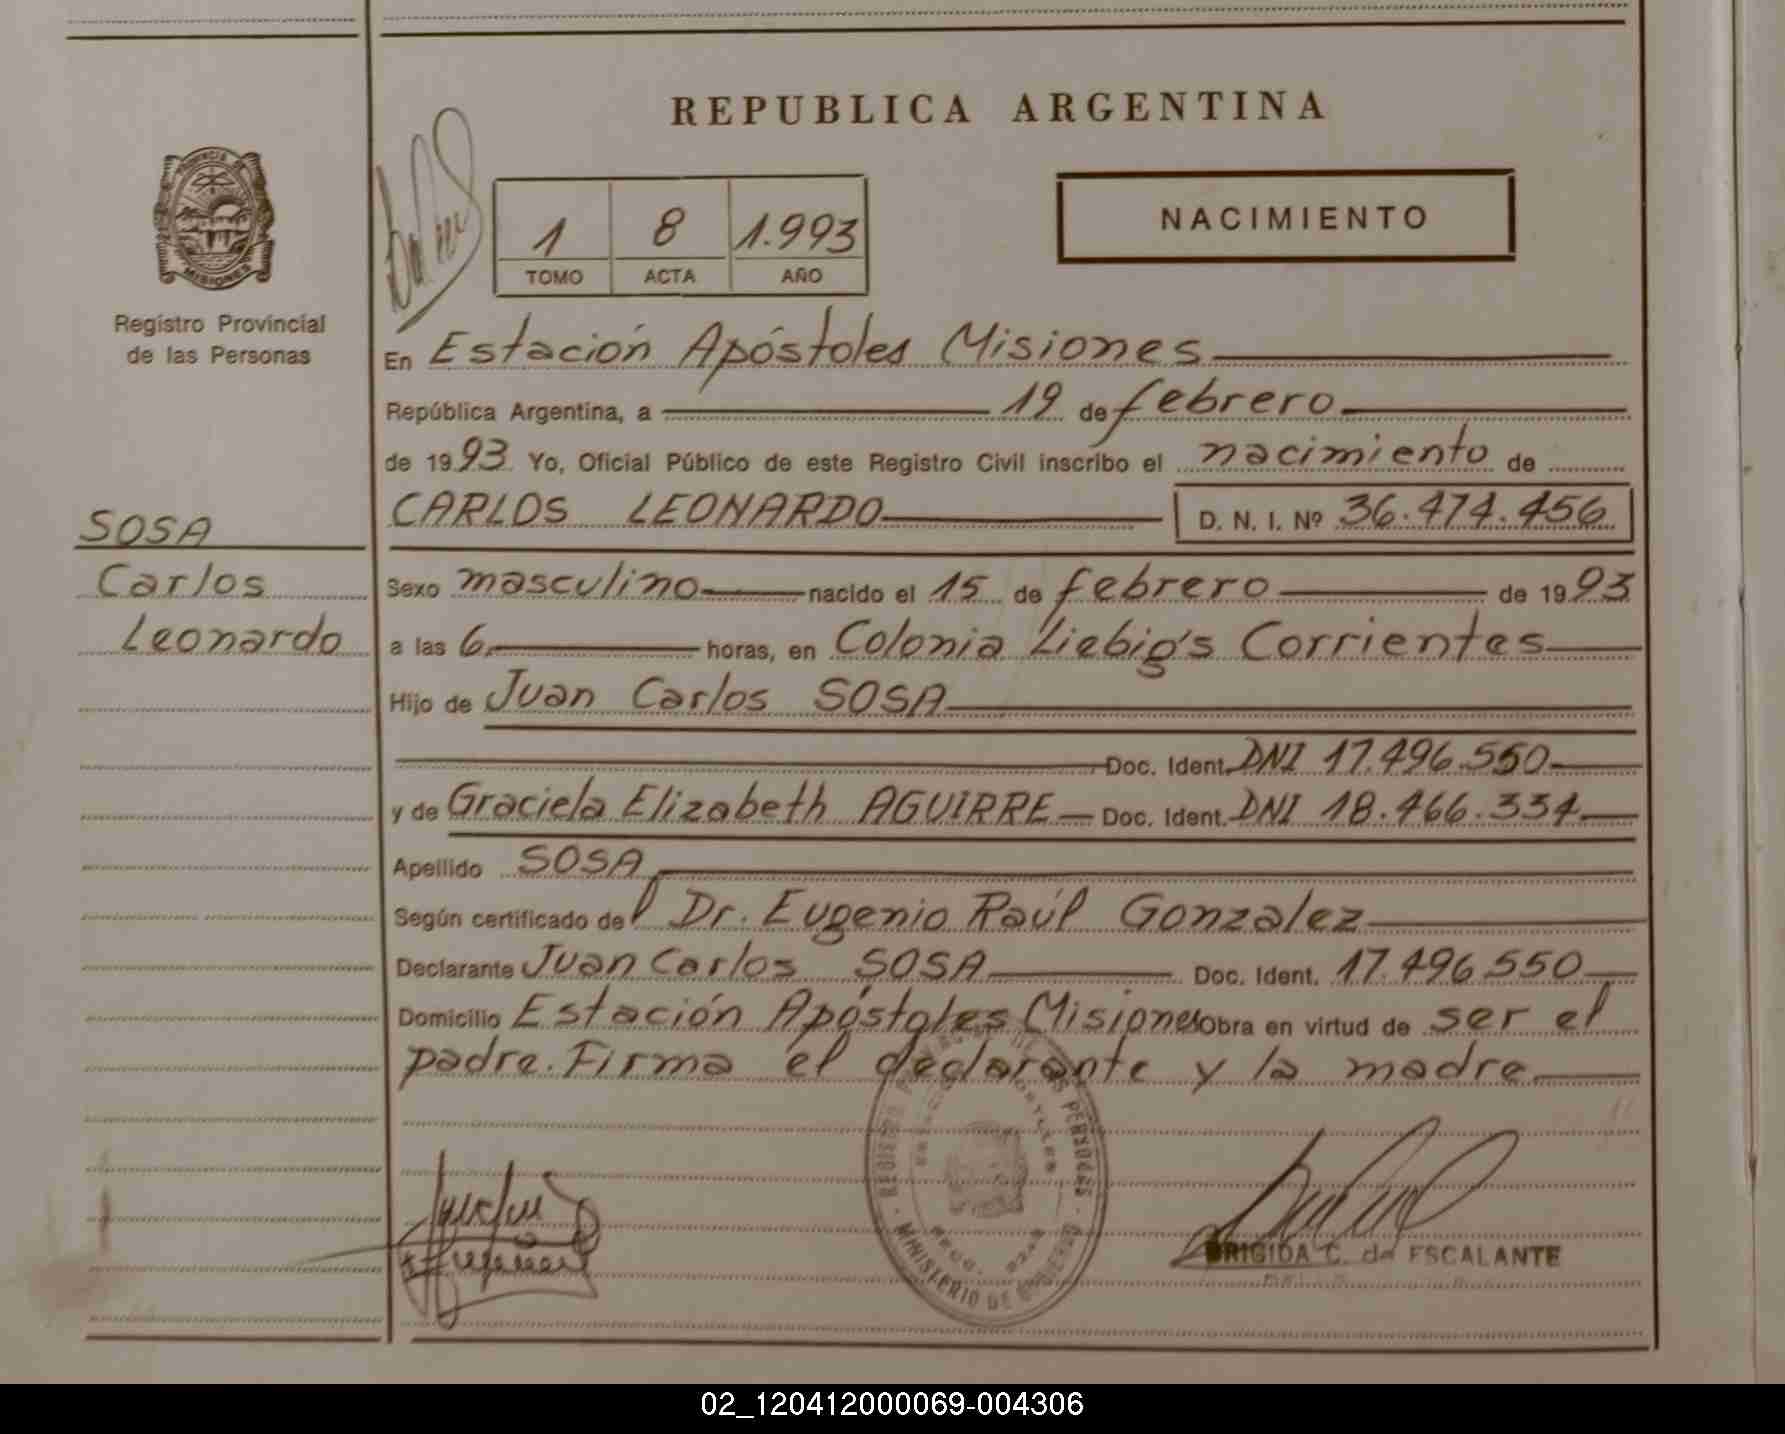 REPUBLICA ARGENTINA
PROVINCIA DE
MISIONES
Registro Provincial
de las Personas
1 8 1.993
TOMO ACTA AÑO
NACIMIENTO
En Estación Apóstoles Misiones
República Argentina, a 19 de febrero
de 1993 Yo, Oficial Público de este Registro Civil inscribo el nacimiento de
CARLOS LEONARDO D. N. I. Nº 36.474.456
SOSA
Carlos
Leonardo
Sexo masculino nacido el 15 de febrero de 1993
a las 6 horas, en Colonia Liebig's Corrientes
Hijo de Juan Carlos SOSA
Doc. Ident. DNI 17.496.550
y de Graciela Elizabeth AGUIRRE Doc. Ident. DNI 18.466.334
Apellido SOSA
Según certificado del Dr. Eugenio Raúl Gonzalez
Declarante Juan Carlos SOSA Doc. Ident. 17.496.550
Domicilio Estación Apóstoles Misiones Obra en virtud de ser el
padre. Firma el declarante y la madre
REGISTRO PROVINCIAL DE LAS PERSONAS
MINISTERIO DE GOBIERNO
BRIGIDA C. de ESCALANTE
02_120412000069-004306